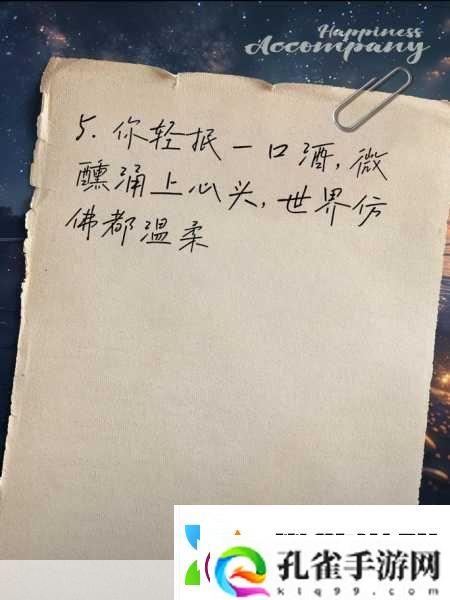 Happiness
Accompany
5.你轻抿一口酒,微
醺涌上心头,世界仿
佛都温柔
孔雀手游网
klq99.com